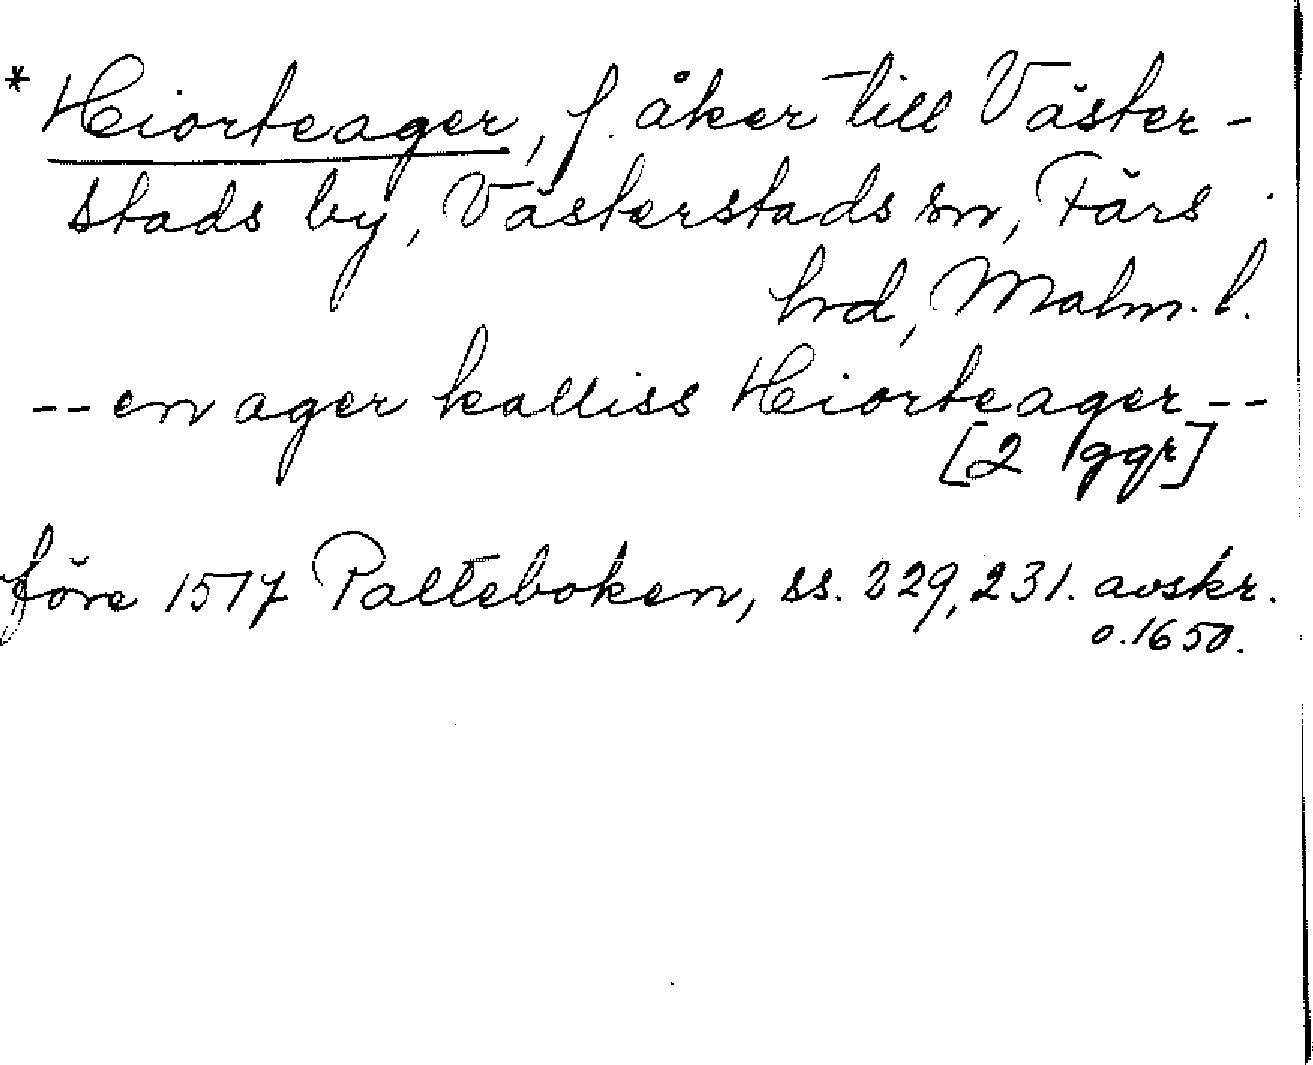 * Heiorteager, f. åker till Väster-
stads by, Västerstads sn, Färs
hrd, Malm. l.
-- en ager kalliss Heiorteager --
[2 ggr]
före 1517 Palteboken, ss. 229, 231. avskr.
o. 1650.